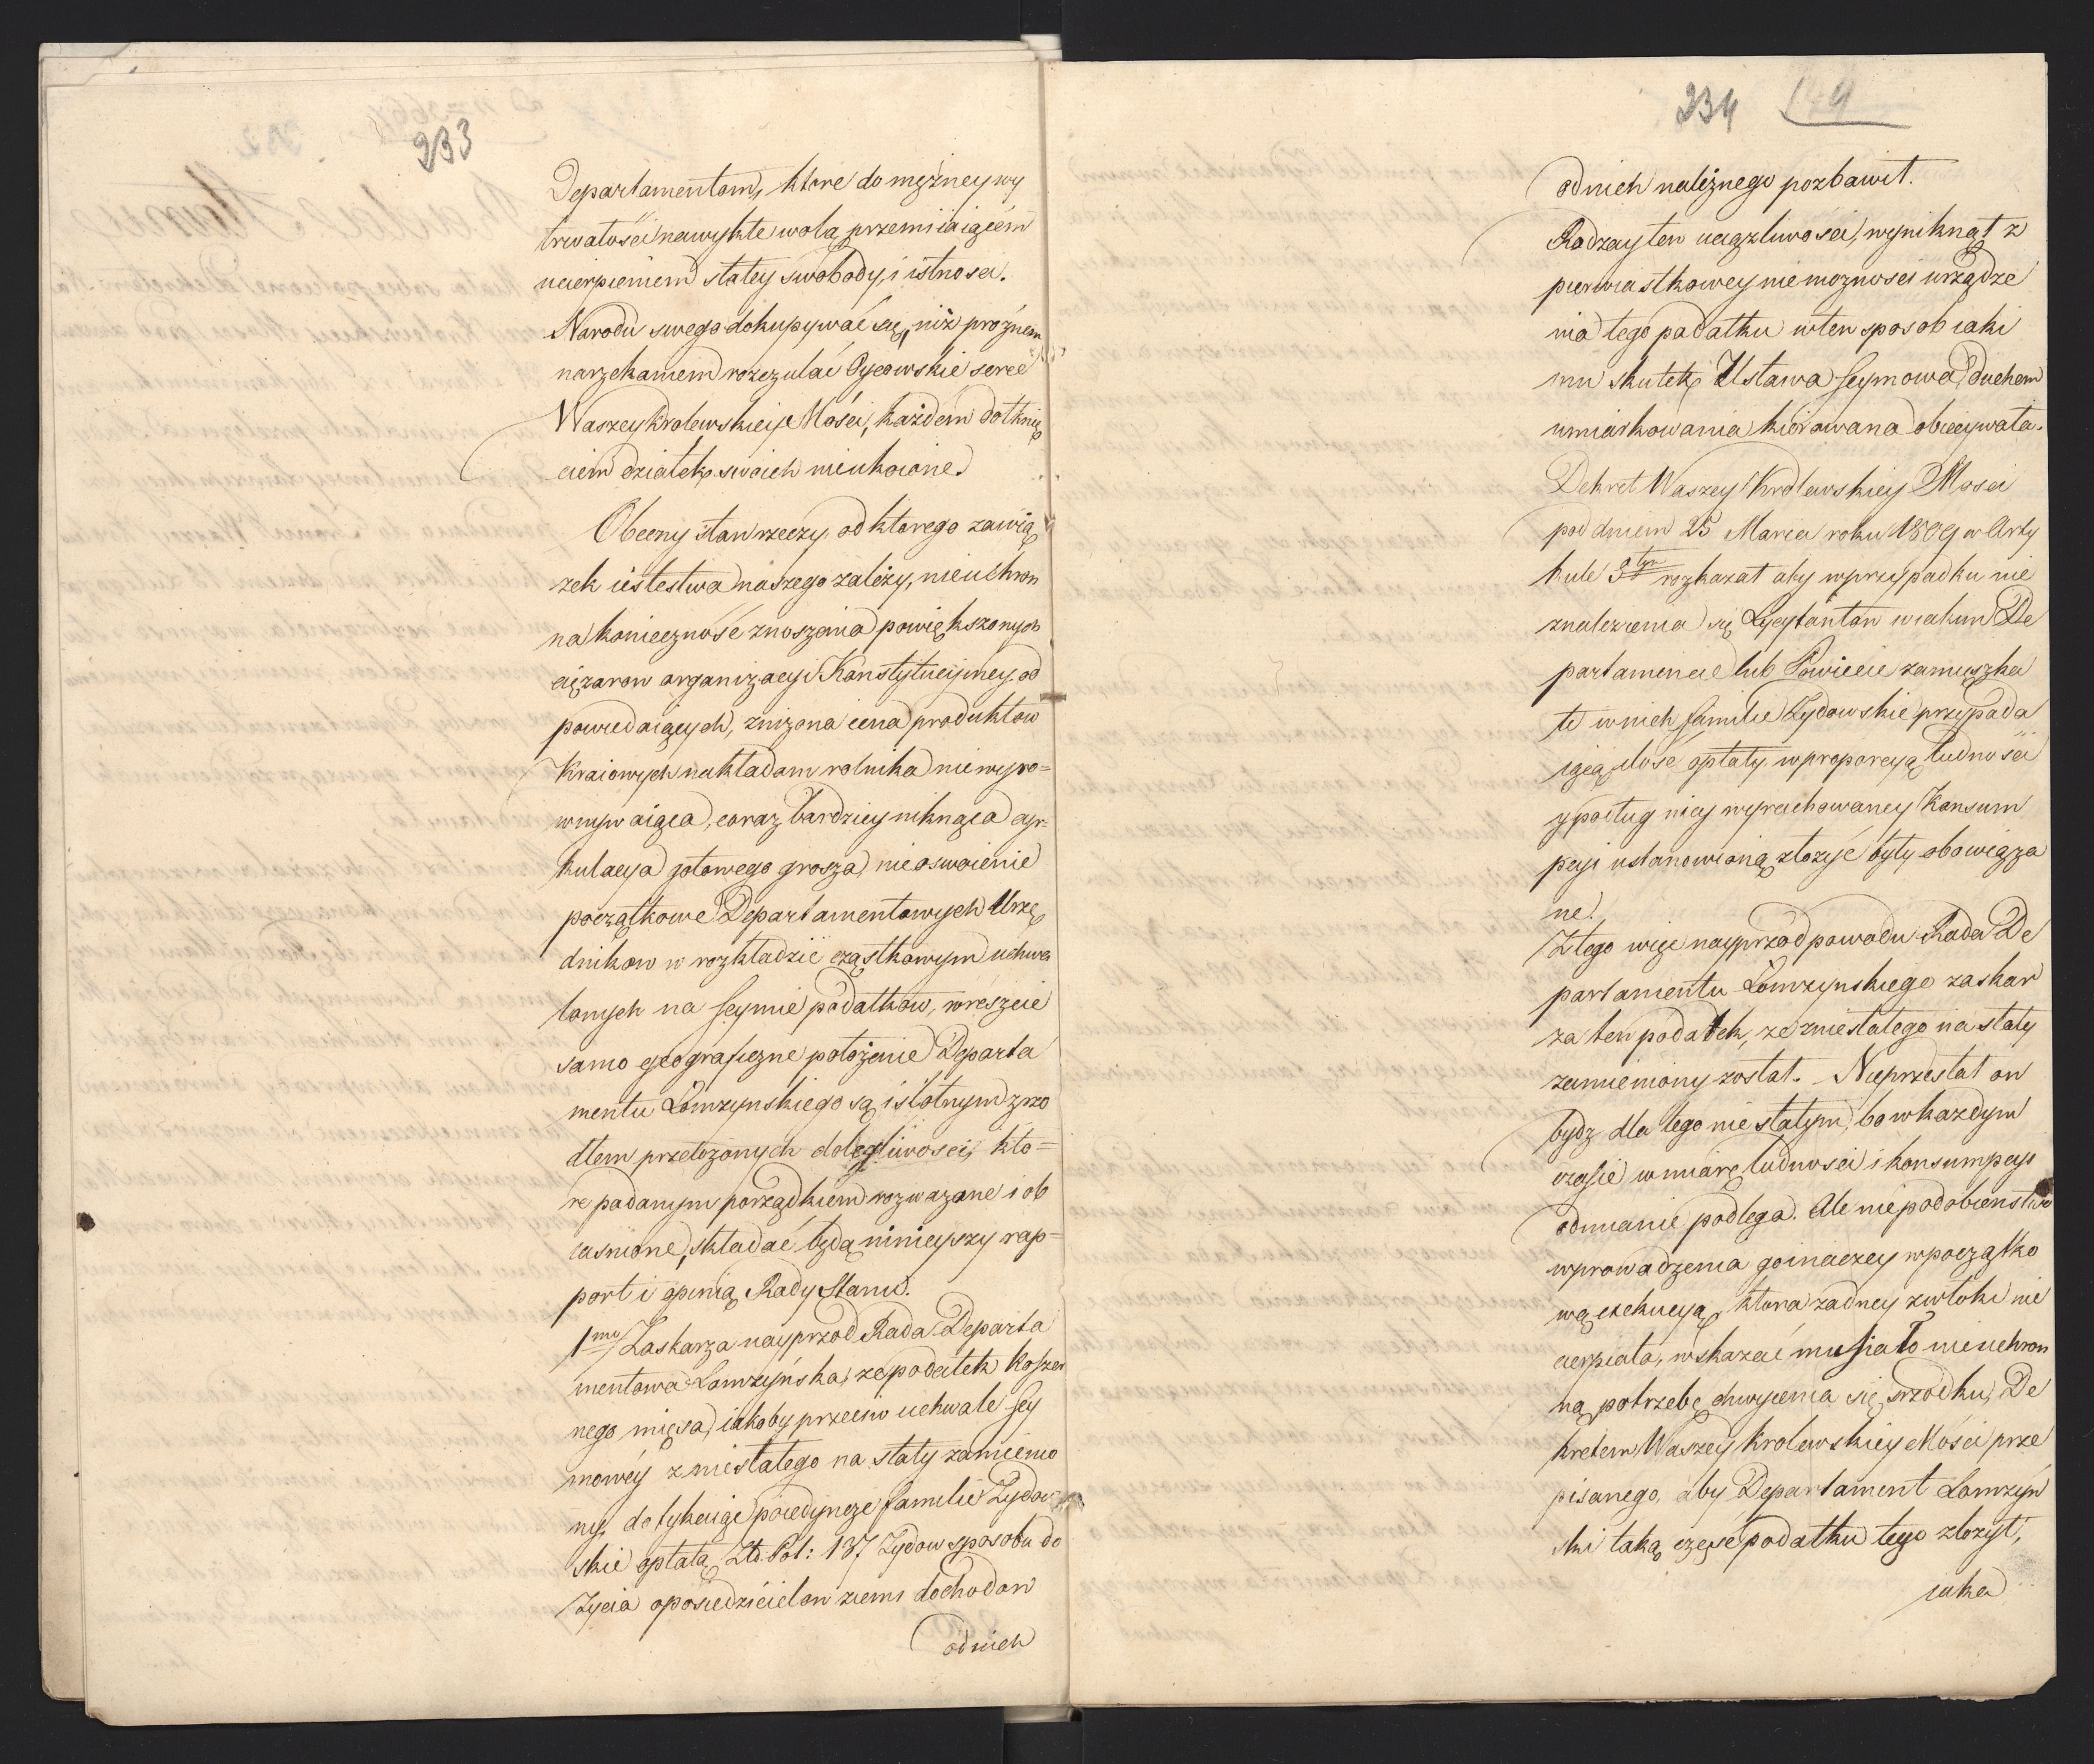 233
Departamentom, ktore do mężney wy
trwałości nawykłe wolą przemiiaiącém
ucierpieniem stałey swobody, i istności.
Narodu swego dokupywać się, niż prożnem
narzekaniem rozczulać Oycowskie serce
Waszey Krolewskiey Mości, każdem dotknię
ciem dziatek swoich nieukoione.
Obecny stan rzeczy, od ktorego zawią
zek iestestwa naszego zależy, nieuchron
na konieczność znoszenia powiększonych
ciężarow organizacyi Konstytucyiney od
powiedaiących, zniżona cena produktow
Kraiowych nakładom rolnika niewyro=
wnywaiąca, coraz bardziey niknąca cyr=
kulacya gotowego grosza, nieoswoienie
początkowe Departamentowych Urzę
dnikow w rozkładzie cząstkowym uchwa
lonych na Seymie podatkow, wreszcie
samo geograficzne położenie Departa
mentu Łomżynskiego są istotnym zrzo
dłem przełożonych dolegliwości, kto=
re podanym porządkiem rozważone i ob
iasnione, składać będą ninieyszy rap=
port i opinią Rady Stanu.
1mo/ Zaskarza nayprzod Rada Departa
mentowa Łomżyńska, że podatek koszer
nego mięsa, iakoby przeciw uchwale Sey
mowéy z niestałego na stały zamienio
ny, dotykaiąc poiedyncze familie Zydow
skie opłatą Złł: Pol: 137 Zydow sposobu do
Zycia a posiedzicielow ziemi dochodow
od nich
234
od nich należnego pozbawił.
Rodzay ten uciążliwości, wyniknął z
pierwiastkowey niemożnosci urządze
nia tego podatku w ten sposob iaki
mu skutek Ustawa Seymowa, duchem
umiarkowania kierowana obiecywała.
Dekret Waszey Krolewskiey Mosci
pod dniem 25 Marca roku 1809 w Arty
kule 3tym rozkazał aby w przypadku nie
znalezienia się Licytantow w iakim De
partamencie lub Powiecie zamieszka
łe w nich familie Zydowskie przypada
iącą ilość opłaty w proporcyą ludności
y podług niey wyrachowaney Konsum
pcyi ustanowioną złożyć były obowiąza
ne.
Z tego więc nayprzod powodu Rada De
partamentu Łomżynskiego zaskar
za ten podatek, ze z niestałego na stały
zamieniony został. Nieprzestał on
bydz dla tego nie stałym, bo w kazdym
czasie w miarę ludności i konsumpcyi
odmianie podlega. Ale niepodobieństwo
wprowadzenia go inaczey w początko
wą exekucyą, ktora żadney zwłoki nie
cierpiała, wskazać musiało nieuchron
ną potrzebę chwycenia się srzodku, De
kretem Waszey Krolewskiey Mości prze
pisanego, aby Departament Łomżyn
ski taką część podatku tego złożył,
iaka